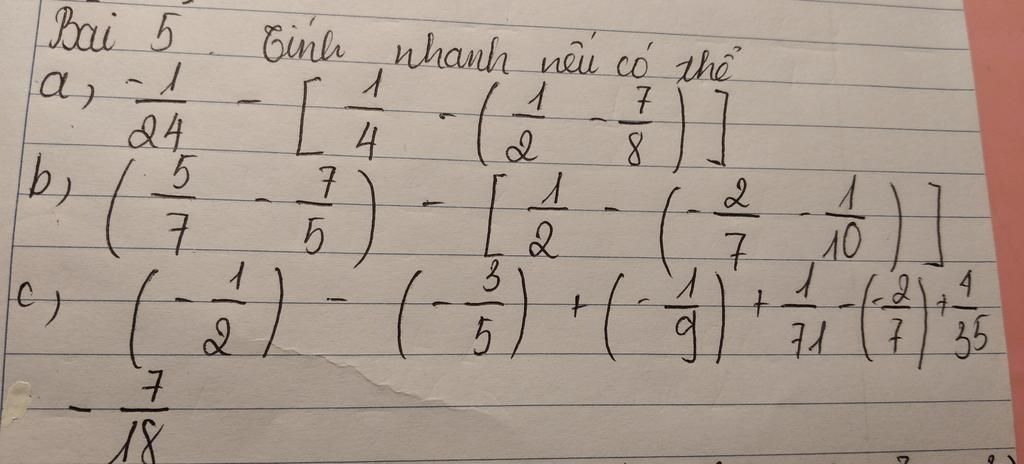 Bài 5. Tính nhanh nếu có thể
a, -1/24 - [1/4 - (1/2 - 7/8)]
b, (5/7 - 7/5) - [1/2 - (-2/7 - 1/10)]
c, (-1/2) - (-3/5) + (-1/9) + 1/71 - (-2/7) + 4/35
- 7/18